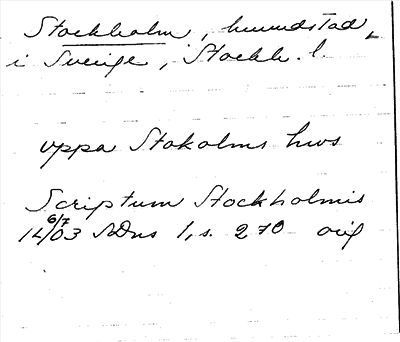 Stockholm, huvudstad,
i Sverige, Stockh. l.
uppa Stokolms hws
Scriptum Stockholmis
6/7
1403 SDns 1, s. 270 orig